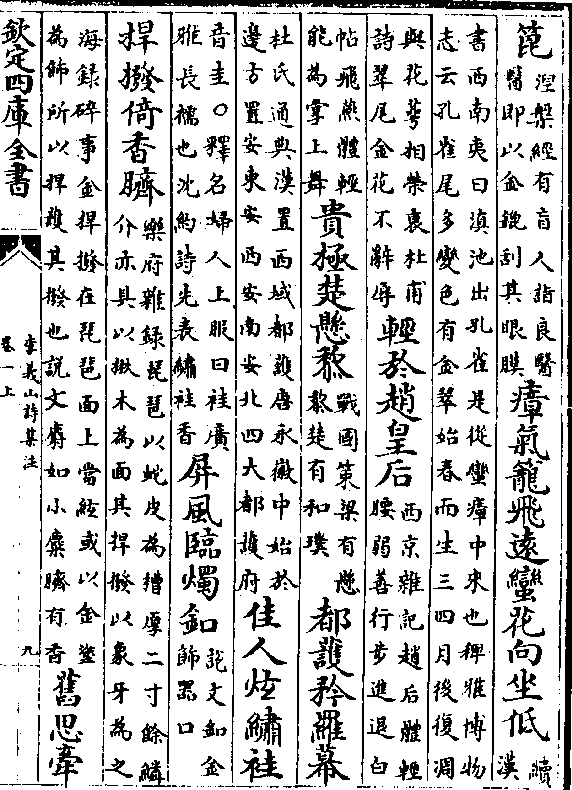 篦
涅槃經有盲人詣良醫
醫即以金錍刮其眼膜
瘴氣籠飛遠蠻花向坐低
續
漢
書西南夷曰滇池出孔雀是從蠻瘴中來也稗雅博物
志云孔雀尾多變色有金翠始春而生三四月後復凋
與花萼相榮衰杜甫
詩翠尾金花不辭辱
輕於趙皇后
西京雜記趙后體輕
腰弱善行步進退白
帖飛燕體輕
能為掌上舞
貴極楚懸黎
戰國策梁有懸
黎楚有和璞
都護矜羅幕
杜氏通典漢置西域都護唐永徽中始於
邊方置安東安西安南安北四大都護府
佳人炫繡袿
音圭○釋名婦人上服曰袿廣
雅長襦也沈約詩先表繡袿香
屏風臨燭釦
說文釦金
飾器口
捍撥倚香臍
樂府雜録琵琶以蛇皮為槽厚二寸餘鱗
介亦具以楸木為面其捍撥以象牙為之
海録碎事金捍撥在琵琶面上當絃或以金塗
為飾所以捍護其撥也說文麝如小麋臍有香
舊思牽
欽定四庫全書
李義山詩集注
卷一上
九